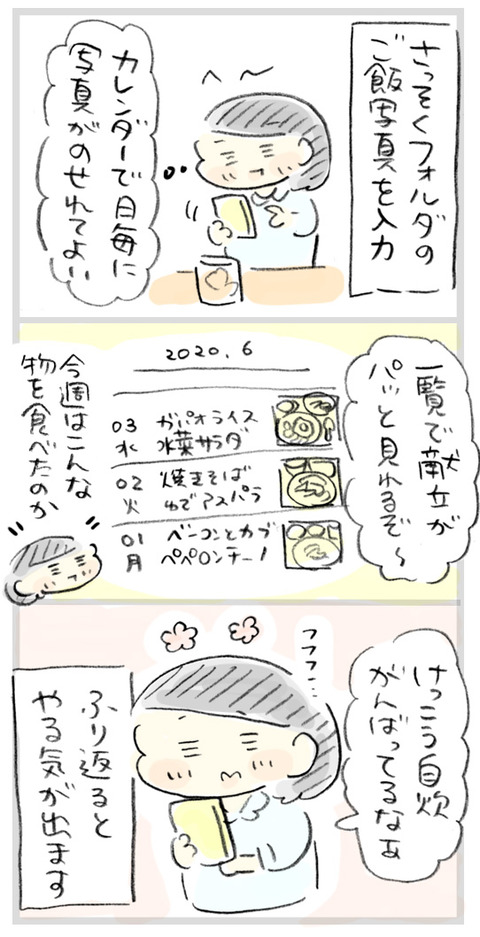 さっそくフォルダの
ご飯写真を入力
カレンダーで日毎に
写真がのせれてよい
一覧で献立が
パッと見れるぞ〜
2020.6
03
水
ガパオライス
水菜サラダ
02
火
焼きそば
ゆでアスパラ
01
月
ベーコンとカブ
ペペロンチーノ
今週はこんな
物を食べたのか
けっこう自炊
がんばってるなぁ
フフフ…
ふり返ると
やる気が出ます